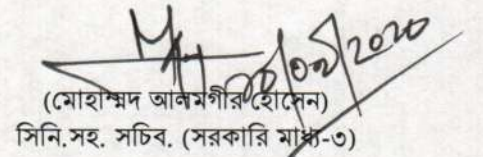 ২০/০৯/2020
(মোহাম্মদ আলমগীর হোসেন)
সিনি.সহ. সচিব. (সরকারি মাধ্য-৩)